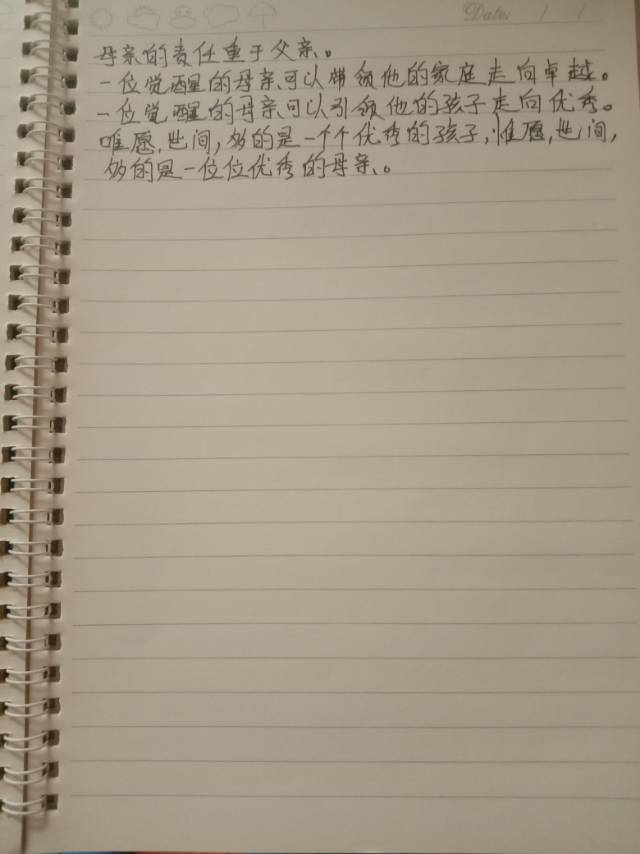 Date: / /
母亲的责任重于父亲。
一位觉醒的母亲可以带领他的家庭走向卓越。
一位觉醒的母亲可以引领他的孩子走向优秀。
唯愿,世间,多的是一个个优秀的孩子,惟愿,世间,
多的是一位位优秀的母亲。